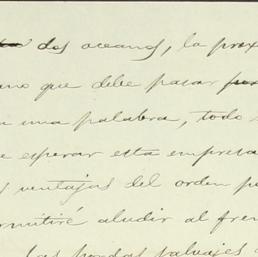 dos oceanos, la prox
ano que debe pasar por
una palabra, todo
e esperar esta empresa
s ventajas del orden po
rmitiré aludir al fren
las hordas salvajes